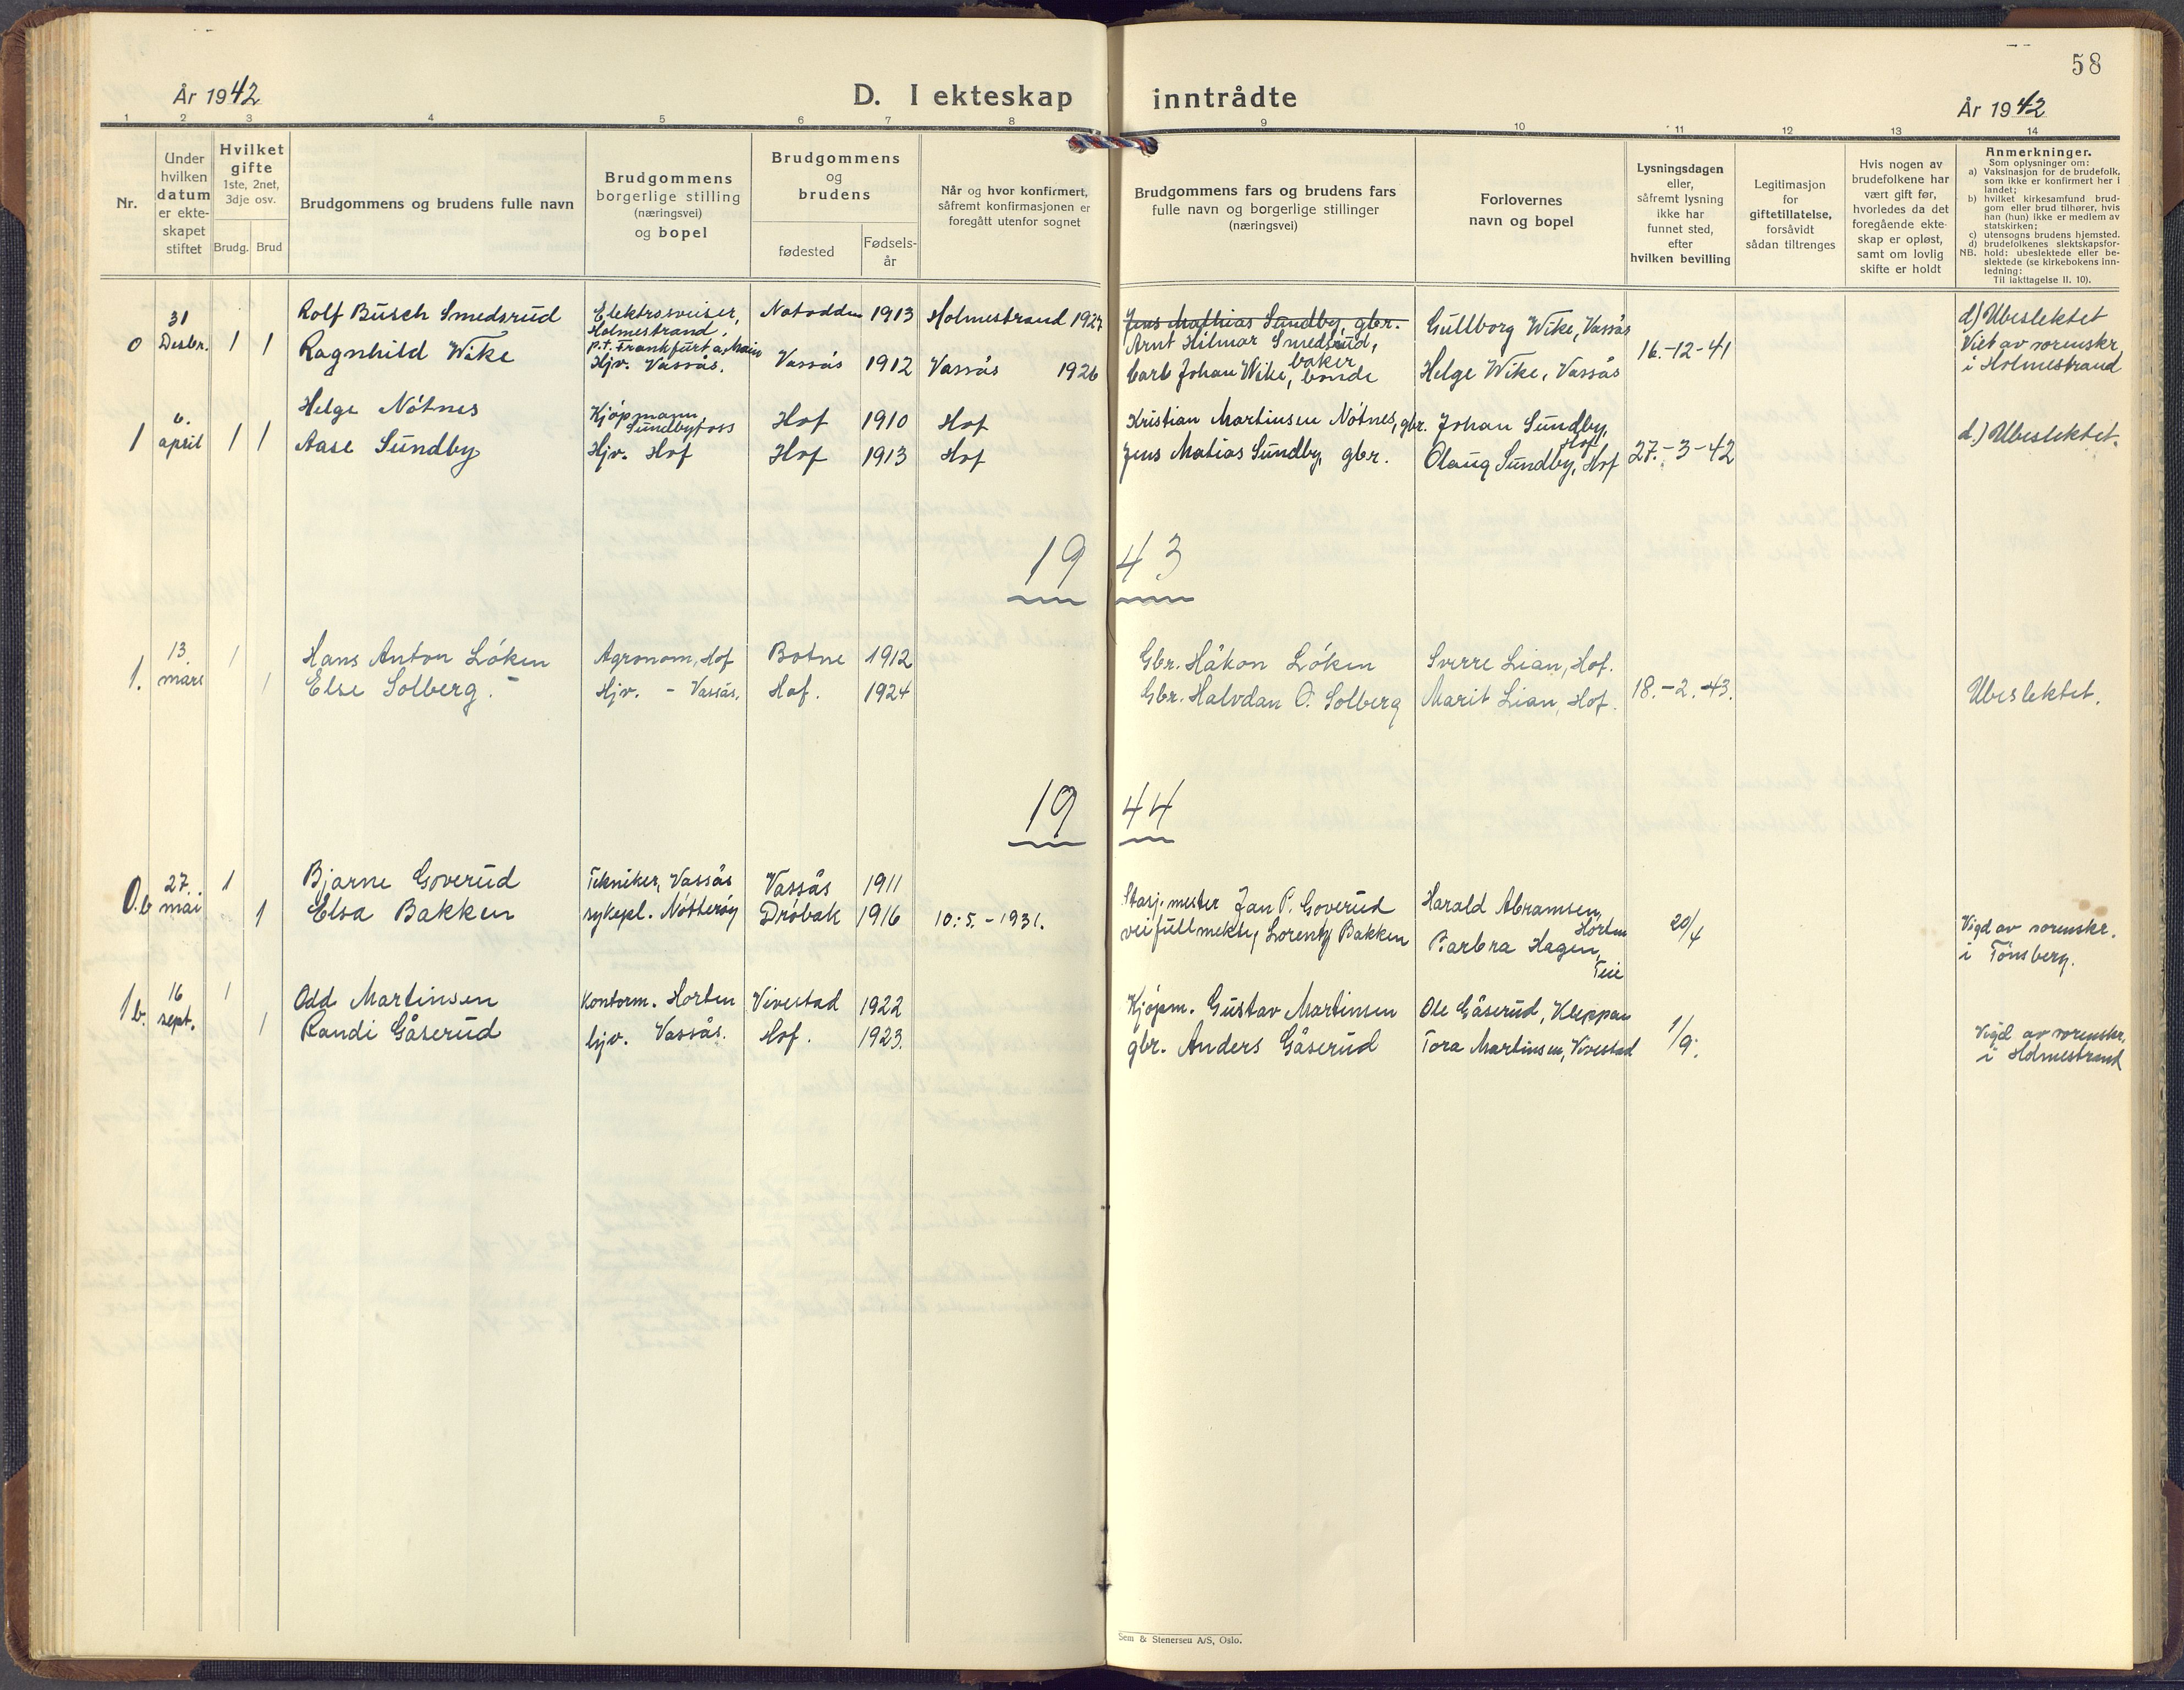 58
År 1942
D. I ekteskap inntrådte
År 1942
1 2 3 4 5 6 7 8 9 10 11 12 13 14
Nr.
Under
hvilken
datum
er ekte-
skapet
stiftet
Hvilket
gifte
1ste, 2net,
3dje osv.
Brudg. Brud
Brudgommens og brudens fulle navn
Brudgommens
borgerlige stilling
(næringsvei)
og bopel
Brudgommens
og
brudens
fødested
Fødsels-
år
Når og hvor konfirmert,
såfremt konfirmasjonen er
foregått utenfor sognet
Brudgommens fars og brudens fars
fulle navn og borgerlige stillinger
(næringsvei)
Forlovernes
navn og bopel
Lysningsdagen
eller,
såfremt lysning
ikke har
funnet sted,
efter
hvilken bevilling
Legitimasjon
for
giftetillatelse,
forsåvidt
sådan tiltrenges
Hvis nogen av
brudefolkene har
vært gift før,
hvorledes da det
foregående ekte-
skap er opløst,
samt om lovlig
skifte er holdt
Anmerkninger.
Som oplysninger om:
a) Vaksinasjon for de brudefolk,
som ikke er konfirmert her i
landet;
b) hvilket kirkesamfund brud-
gom eller brud tilhører, hvis
han (hun) ikke er medlem av
statskirken;
c) utensogns brudens hjemsted.
d) brudefolkenes slektskapsfor-
NB. hold: ubeslektede eller be-
slektede (se kirkebokens inn-
ledning:
Til iakttagelse II. 10).
0
31
Desbr.
1 1
Rolf Busch Smedsrud
Ragnhild Wike
Elektrosveiser,
Holmestrand.
p.t. Frankfurt a. Main
Hjv. Vassås.
Notodden 1913 Holmestrand 1927
Vassås 1912 Vassås 1926
Jens Mathias Sundby, gbr.
Arnt Hilmar Smedsrud,
baker
Carl Johan Wike, bonde
Gullborg Wike, Vassås
Helge Wike, Vassås
16.-12-41
d) Ubeslektet
Viet av sorenskr.
i Holmestrand
1
6.
april
1 1
Helge Nótnes
Aase Sundby
Kjøpmann,
Sundbyfoss
Hjv. Hof
Hof 1910 Hof
Hof 1913 Hof
Kristian Martinsen Nótnes, gbr.
Jens Matias Sundby, gbr.
Johan Sundby,
Hof
Olaug Sundby, Hof
27.-3-42
d.) Ubeslektet.
19 43
1.
13
mars
1
1
Hans Anton Lóken
Else Solberg.
Agronom, Hof
Hjv. - Vassås.
Botne 1912
Hof. 1924
Gbr. Håkon Lóken
Gbr. Halvdan O. Solberg
Sverre Lian, Hof.
Marit Lian, Hof.
18.-2.-43.
Ubeslektet.
19 44
0.b
27.
mai
1
1
Bjarne Goverud
Elsa Bakken
Tekniker, Vassås
sykepl. Nótterøy
Vassås 1911
Drøbak 1916 10.5.-1931.
Stasj.mester Jan P. Goverud
veifullmektig Lorentz Bakken
Harald Abramsen,
Horten
Barbra Hagen,
Teie
20/4
Vigd av sorenskr.
i Tønsberg.
1b.
16
sept.
1
1
Odd Martinsen
Randi Gåserud
Kontorm. Horten
hjv. Vassås.
Vivestad 1922
Hof. 1923.
Kjøpm. Gustav Martinsen
gbr. Anders Gåserud
Ole Gåserud, Kleppan
Tora Martinsen, Vivestad
1/9.
Vigd av sorenskr.
i Holmestrand
Sem & Stenersen A/S, Oslo.